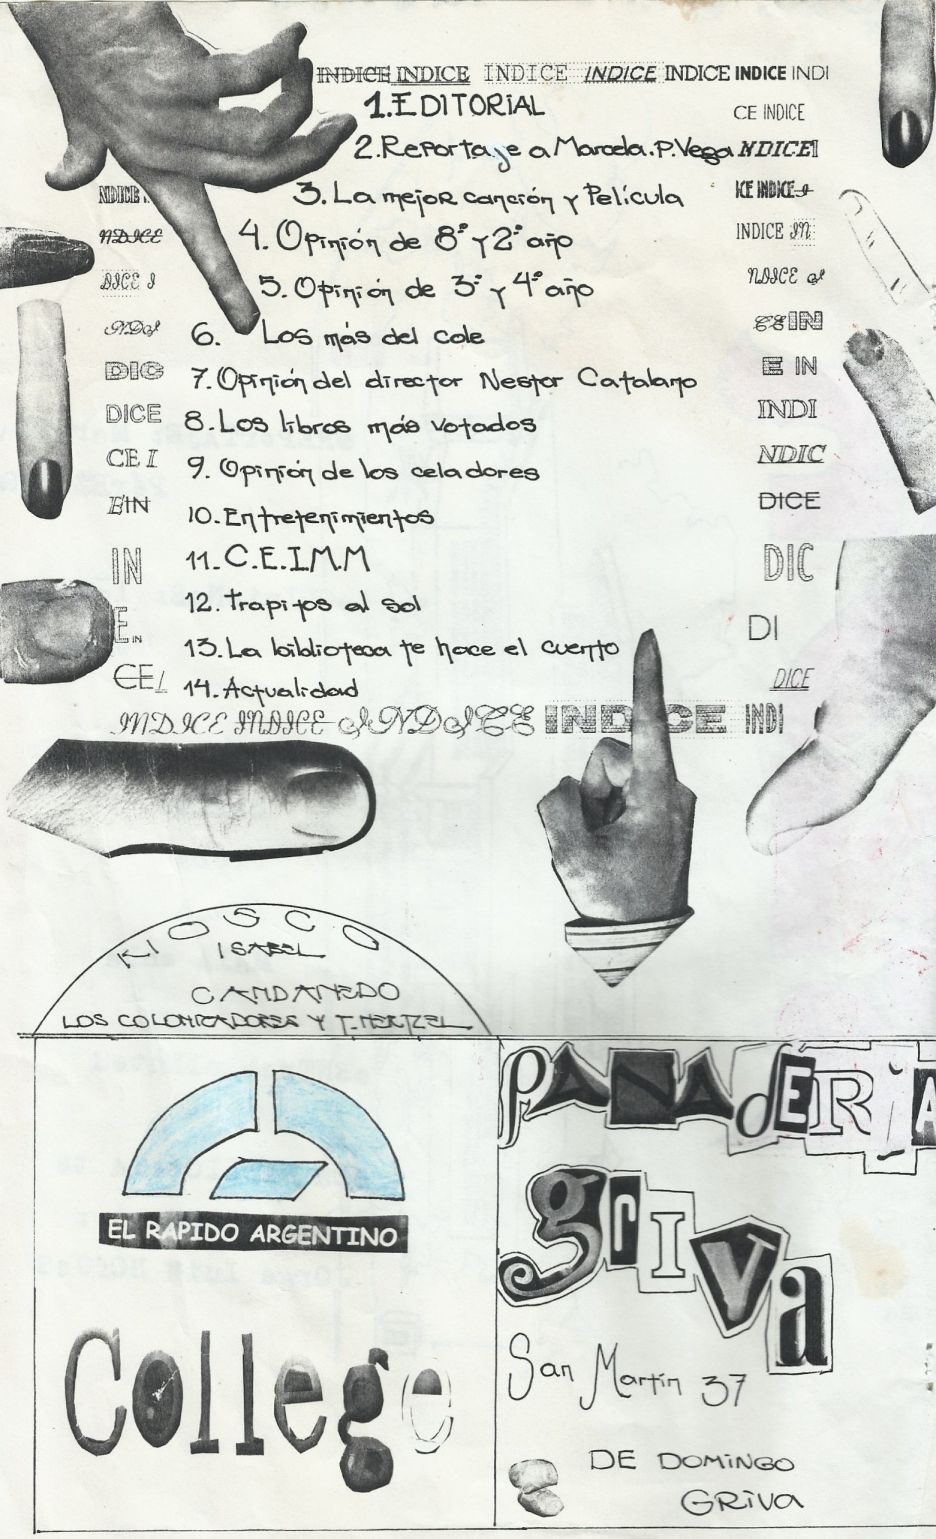 INDICE INDICE INDICE INDICE INDICE INDICE INDI
1. EDITORIAL
CE INDICE
2. Reportaje a Marcela.P.Vega
NDICEI
3. La mejor canción y Película
NDICE
ICE INDICE
4. Opinión de 8° y 2° año
NDICE
INDICE IN
5. Opinión de 3° y 4° año
DICE I
NDICE
6. Los más del cole
NDI
CE IN
7. Opinión del director Nestor Catalano
DIC
E IN
8. Los libros más votados
DICE
INDI
9. Opinión de los celadores
CE I
NDIC
10. Entretenimientos
E IN
DICE
11. C.E.I.M.M
IN
DIC
12. Trapitos al sol
E IN
DI
13. La biblioteca te hace el cuento
CE I
DICE
14. Actualidad
INDICE INDICE INDICE INDICE INDI
KIOSCO
ISABEL
CANDANEDO
LOS COLONIZADORES Y T. HERTZEL
EL RAPIDO ARGENTINO
College
PANADERIA
griva
San Martín 37
DE DOMINGO
GRIVA